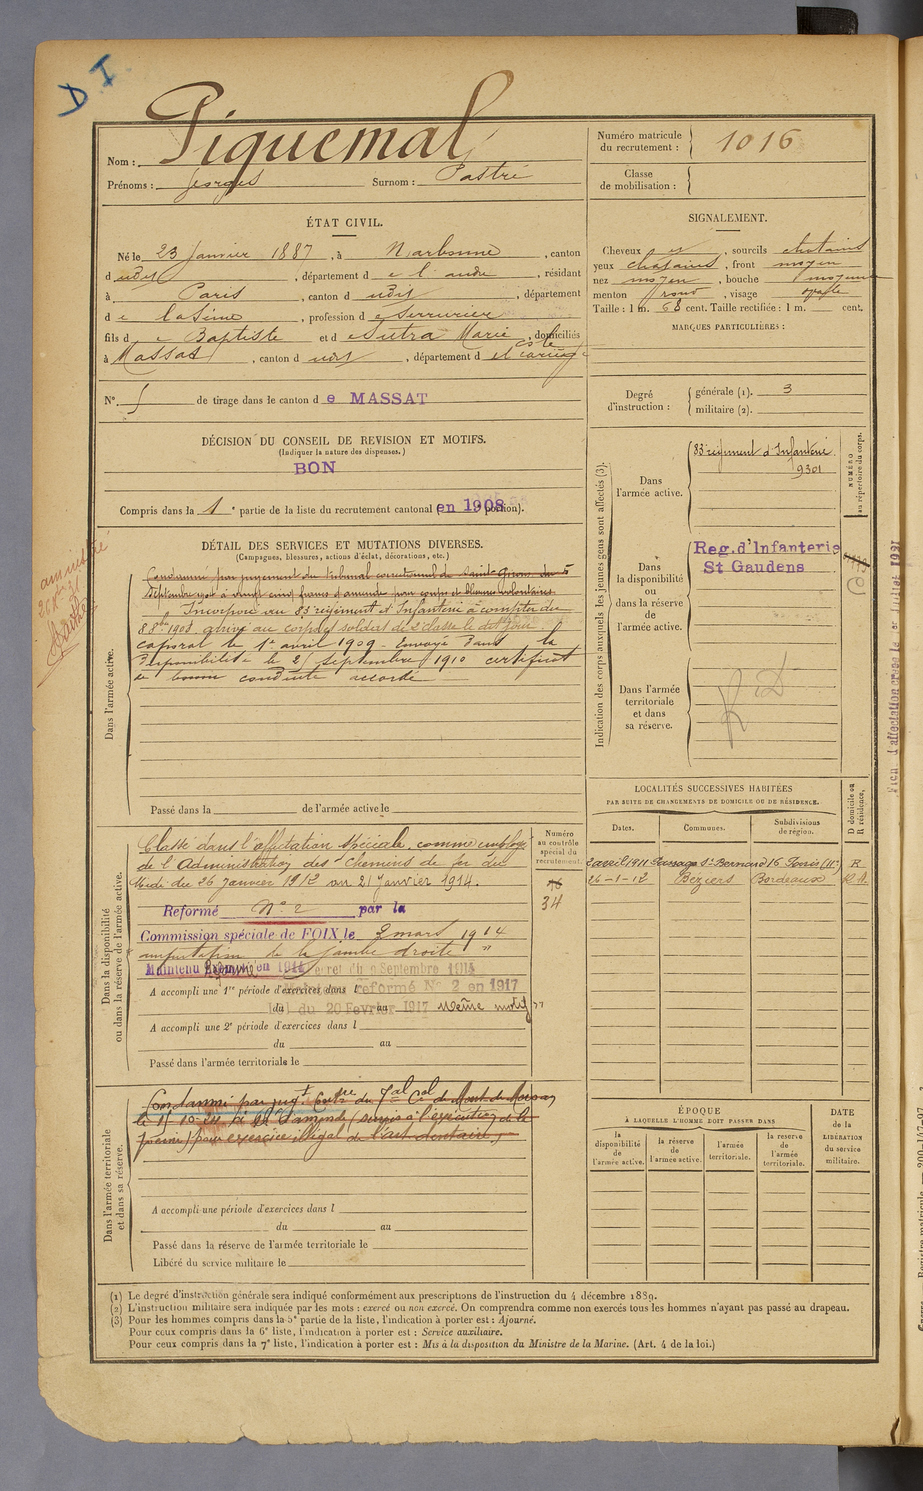 D I
Nom : Piquemal
Prénoms : Georges Surnom : Pastré
Numéro matricule du recrutement : 1016
Classe de mobilisation :
ÉTAT CIVIL.
Né le 23 Janvier 1887, à Narbonne, canton
d udit, département d e l'aude, résidant
à Paris, canton d udit, département
d e la Seine, profession d e Serrurier
fils d e Baptiste et d e Sutra Marie, domiciliés
à Massat, canton d udit, département d e l'ariège
N° de tirage dans le canton d e MASSAT
DÉCISION DU CONSEIL DE REVISION ET MOTIFS.
(Indiquer la nature des dispenses.)
BON
Compris dans la 1e partie de la liste du recrutement cantonal ( en 1908 portion).
SIGNALEMENT.
Cheveux et, sourcils chatains
yeux chatains, front moyen
nez moyen, bouche moyenne
menton rond, visage
Taille : 1 m. 68 cent. Taille rectifiée : 1 m. cent.
MARQUES PARTICULIÈRES :
Degré d'instruction : générale (1). 3
militaire (2).
DÉTAIL DES SERVICES ET MUTATIONS DIVERSES.
(Campagnes, blessures, actions d'éclat, décorations, etc.)
Dans l'armée active.
Condamné par jugement du tribunal correctionnel de Saint-Girons du 5
Septembre à vingt cinq francs d'amende pour coups et blessures volontaires
Incorporé au 83 régiment d'Infanterie à compter du
8 8bre 1908 arrivé au corps et soldat de 2e classe le dit jour
caporal le 1er avril 1909 Envoyé dans la
disponibilité le 25 septembre 1910 certificat
de bonne conduite accordé
Passé dans la de l'armée active le
Indication des corps auxquels les jeunes gens sont affectés (3).
NUMÉRO au répertoire du corps.
Dans l'armée active.
83 régiment d'Infanterie
9301
Dans la disponibilité ou dans la réserve de l'armée active.
Reg. d'Infanterie
St Gaudens
Dans l'armée territoriale et dans sa réserve.
LOCALITÉS SUCCESSIVES HABITÉES
PAR SUITE DE CHANGEMENTS DE DOMICILE OU DE RÉSIDENCE.
Dates. Communes. Subdivisions de région. D domicile ou R résidence.
2 avril 1911 Passage St Bernard 16 Paris (11e) R
26-1-12 Béziers Bordeaux
Dans la disponibilité ou dans la réserve de l'armée active.
Numéro au contrôle spécial du recrutement.
34
Classé dans l'affectation Spéciale comme employé
de l'Administration des Chemins de fer du
Midi du 26 Janvier 1912 au 21 Janvier 1914.
Reformé N° 2 par la
Commission spéciale de FOIX le 3 mars 1914
amputation de la jambe droite "
Maintenu en 1914 Decret du 9 Septembre 1914
A accompli une 1re période d'exercices dans l
réformé N° 2 en 1917
du au
Loi du 20 Fevrier 1917 même motif "
A accompli une 2e période d'exercices dans l
du au
Passé dans l'armée territoriale le
Dans l'armée territoriale et dans sa réserve.
Condamné par jugt du Tal Cel de Mont de Marsan
pour exercice illégal de l'art dentaire
A accompli une période d'exercices dans l
du au
Passé dans la réserve de l'armée territoriale le
Libéré du service militaire le
ÉPOQUE
À LAQUELLE L'HOMME DOIT PASSER DANS
la disponibilité de l'armée active. la réserve de l'armée active. l'armée territoriale. la reserve de l'armée territoriale.
DATE de la LIBÉRATION du service militaire.
(1) Le degré d'instruction générale sera indiqué conformément aux prescriptions de l'instruction du 4 décembre 1889.
(2) L'instruction militaire sera indiquée par les mots : exercé ou non exercé. On comprendra comme non exercés tous les hommes n'ayant pas passé au drapeau.
(3) Pour les hommes compris dans la 5e partie de la liste, l'indication à porter est : Ajourné.
Pour ceux compris dans la 6e liste, l'indication à porter est : Service auxiliaire.
Pour ceux compris dans la 7e liste, l'indication à porter est : Mis à la disposition du Ministre de la Marine. (Art. 4 de la loi.)